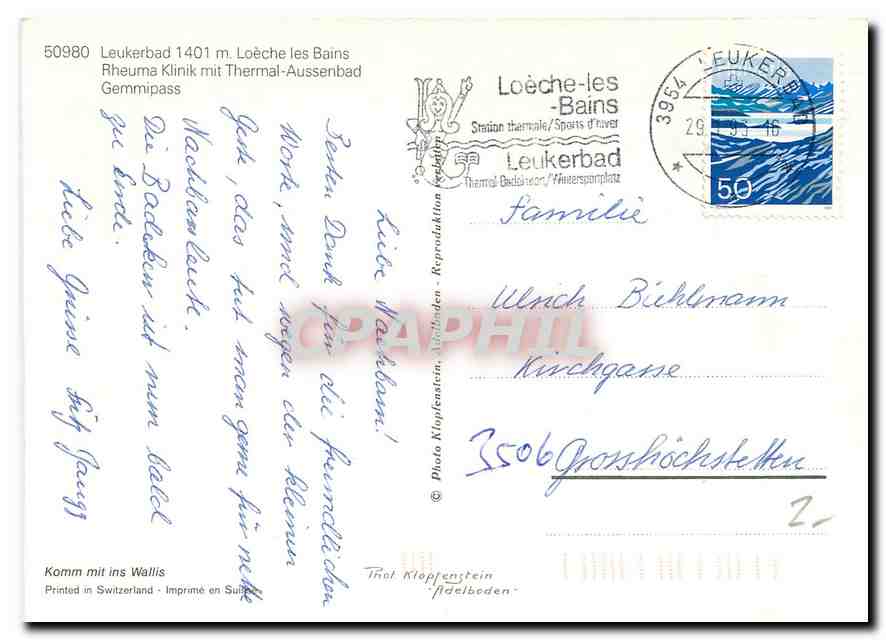 50980 Leukerbad 1401 m. Loèche les Bains
Rheuma Klinik mit Thermal-Aussenbad
Gemmipass
Liebe Nachbarn!
Besten Dank für die freundlichen
Worte, und wegen der kleinen
Geste, das tut man gerne für nette
Nachbarsleute.
Die Badekur ist nun bald
zu Ende.
Liebe Grüsse Fritz
Komm mit ins Wallis
Printed in Switzerland - Imprimé en Suisse
© Photo Klopfenstein, Adelboden - Reproduktion verboten
Loèche-les
-Bains
Station thermale/Sports d'hiver
Leukerbad
Thermal-Badekurort/Wintersportplatz
3954 LEUKERBAD
50
Familie
Ulrich Bühlmann
Kirchgasse
3506 Grosshöchstetten
2.-
Phot. Klopfenstein
-Adelboden-
CPAPHIL